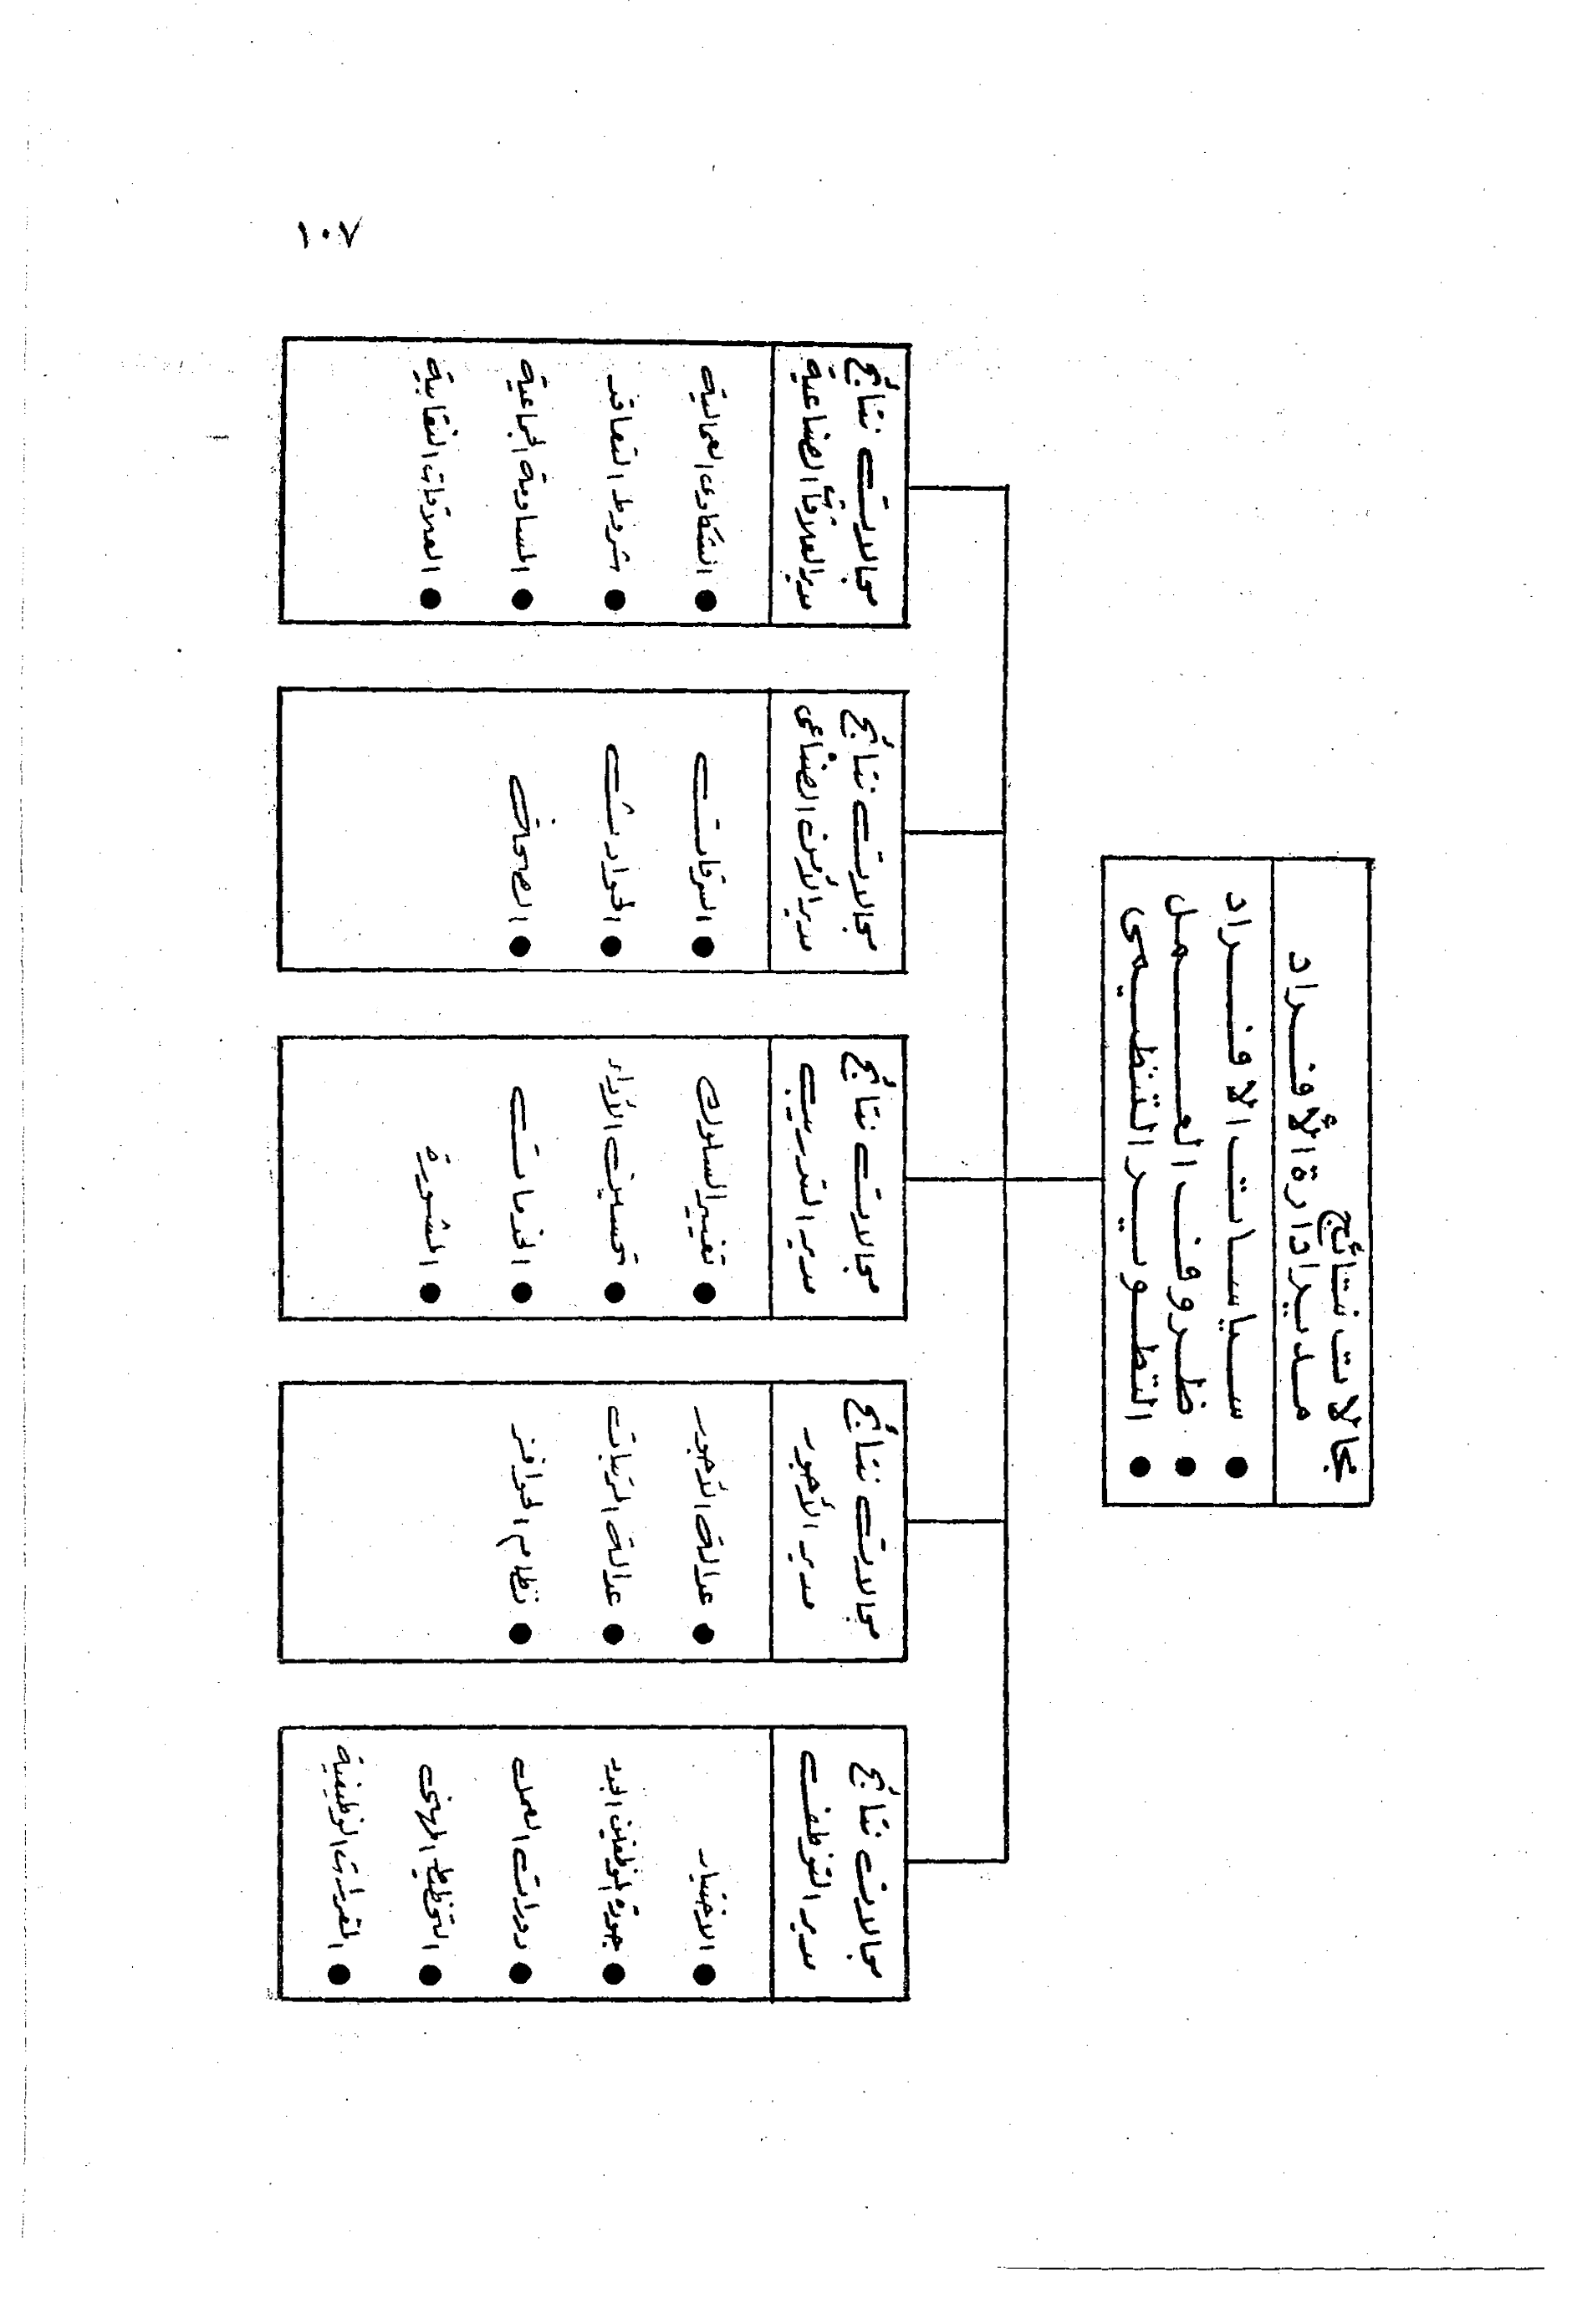 ١٠٧
مجالات نتائج
مدير ادارة الأفراد
● سياسات الافراد
● ظروف العمل
● التطوير التنظيمى
مجالات نتائج
مدير التوظف
● الاختيار
● جودة الموظفين الجدد
● دورات العمل
● التخطيط المهنى
● المقررات الوظيفية
مجالات نتائج
مدير الأجور
● عدالة الأجور
● عدالة المرتبات
● نظام الحوافز
مجالات نتائج
مدير التدريب
● تغيير السلوك
● تحسين الأداء
● الخدمات
● المشورة
مجالات نتائج
مدير الأمن الصناعى
● السرقات
● الحوادث
● الصحافى
مجالات نتائج
مدير العلاقات الصناعية
● الشكاوى العمالية
● شروط التعاقد
● المساومة الجماعية
● العلاقات النقابية